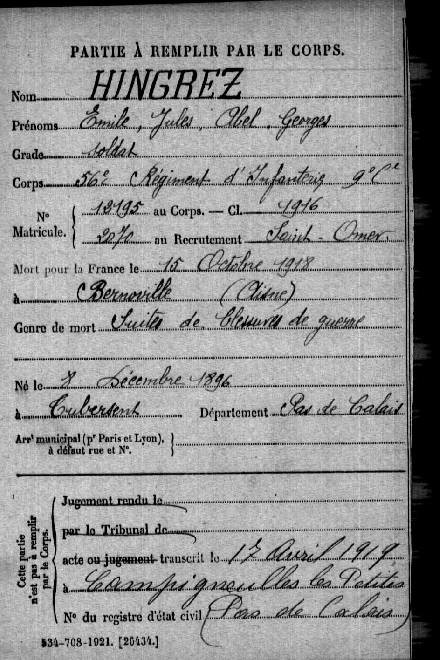 PARTIE À REMPLIR PAR LE CORPS.
Nom HINGREZ
Prénoms Emile, Jules, Abel, Georges
Grade Soldat
Corps 56e Régiment d'Infanterie 9e Cie
N° Matricule. { 12195 au Corps. — Cl. 1916
2070 au Recrutement Saint-Omer
Mort pour la France le 15 Octobre 1918
à Bernoville (Aisne)
Genre de mort Suites de blessures de guerre
Né le 8 Décembre 1896
à Cubersent Département Pas de Calais
Arrt municipal (pr Paris et Lyon), à défaut rue et N°. }
Cette partie n'est pas à remplir par le Corps. { Jugement rendu le
par le Tribunal de
acte ou jugement transcrit le 17 Avril 1919
à Campigneulles les Petites
N° du registre d'état civil (Pas de Calais)
534-708-1921. [26434.]